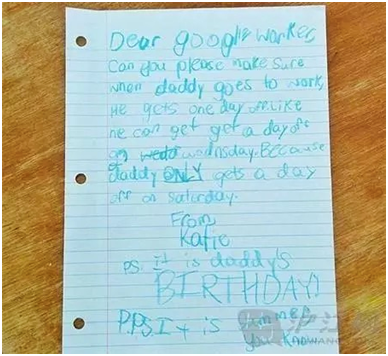 Dear google worker,
Can you please make sure
when daddy goes to work,
He gets one day off. Like
he can get get a day off
on wednsday. Because
daddy ONLY gets a day
off on saturday.
From,
Katie
P.S. It is daddy's
BIRTHDAY!
P.P.S. It is summer
you know
沪江网